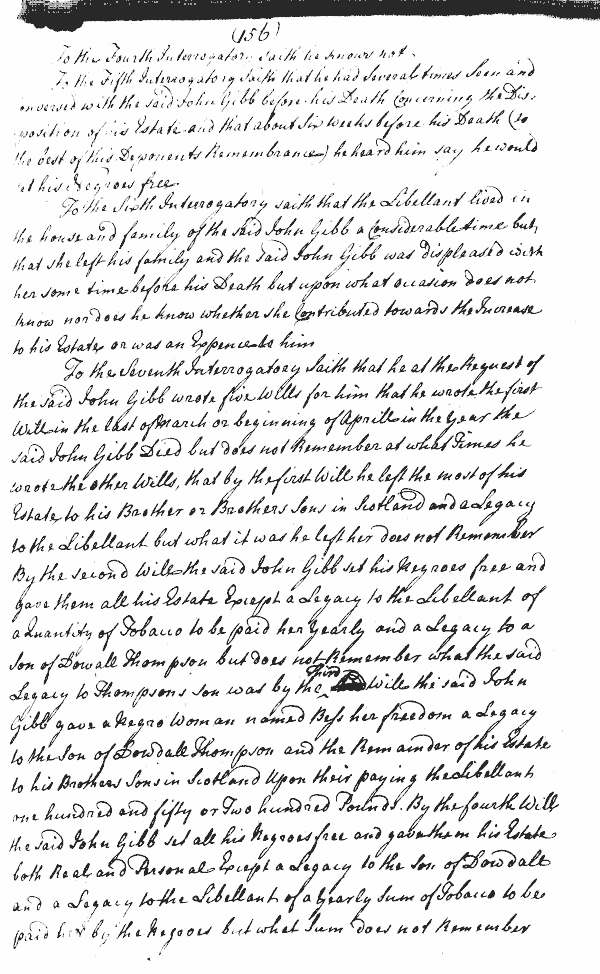 (156)
To the Fourth Interrogatory Saith he knows not.
To the Fifth Interrogatory Saith that he had Several times Seen and
onversed with the said John Gibb before his Death Concerning the Dis-
position of his Estate and that about Six weeks before his Death (to
the best of this Deponents Remembrance) he heard him say he would
et his Negroes free
To the Sixth Interrogatory saith that the Libellant lived in
the house and family of the said John Gibb a Considerable time but
that she left his family and the said John Gibb was displeased with
her some time before his Death but upon what occasion does not
know nor does he know whether she Contributed towards the Increase
to his Estate or was an Expence to him
To the Seventh Interrogatory Saith that he at the Request of
the said John Gibb wrote five Wills for him that he wrote the first
Will in the last of March or beginning of Aprill in the Year the
said John Gibb Died but does not Remember at what Times he
wrote the other Wills, that by the first Will he left the most of his
Estate to his Brother or Brothers Sons in Scotland and a Legacy
to the Libellant but what it was he left her does not Remember
By the second Will the said John Gibb set his Negroes free and
gave them all his Estate Except a Legacy to the Libellant of
a Quantity of Tobacco to be paid her Yearly and a Legacy to a
Son of Dowall Thompson but does not Remember what the said
Legacy to Thompsons son was by the Third Will the said John
Gibb gave a Negro Woman named Bess her freedom a Legacy
to the Son of Dowdall Thompson and the Remainder of his Estate
to his Brothers Sons in Scotland Upon their paying the Libellant
one hundred and fifty or Two hundred Pounds. By the fourth Will
the said John Gibb set all his Negroes free and gave them his Estate
both Real and Personal Except a Legacy to the Son of Dowdall
and a Legacy to the Libellant of a Yearly Sum of Tobacco to be
paid her by the Negroes but what Sum does not Remember